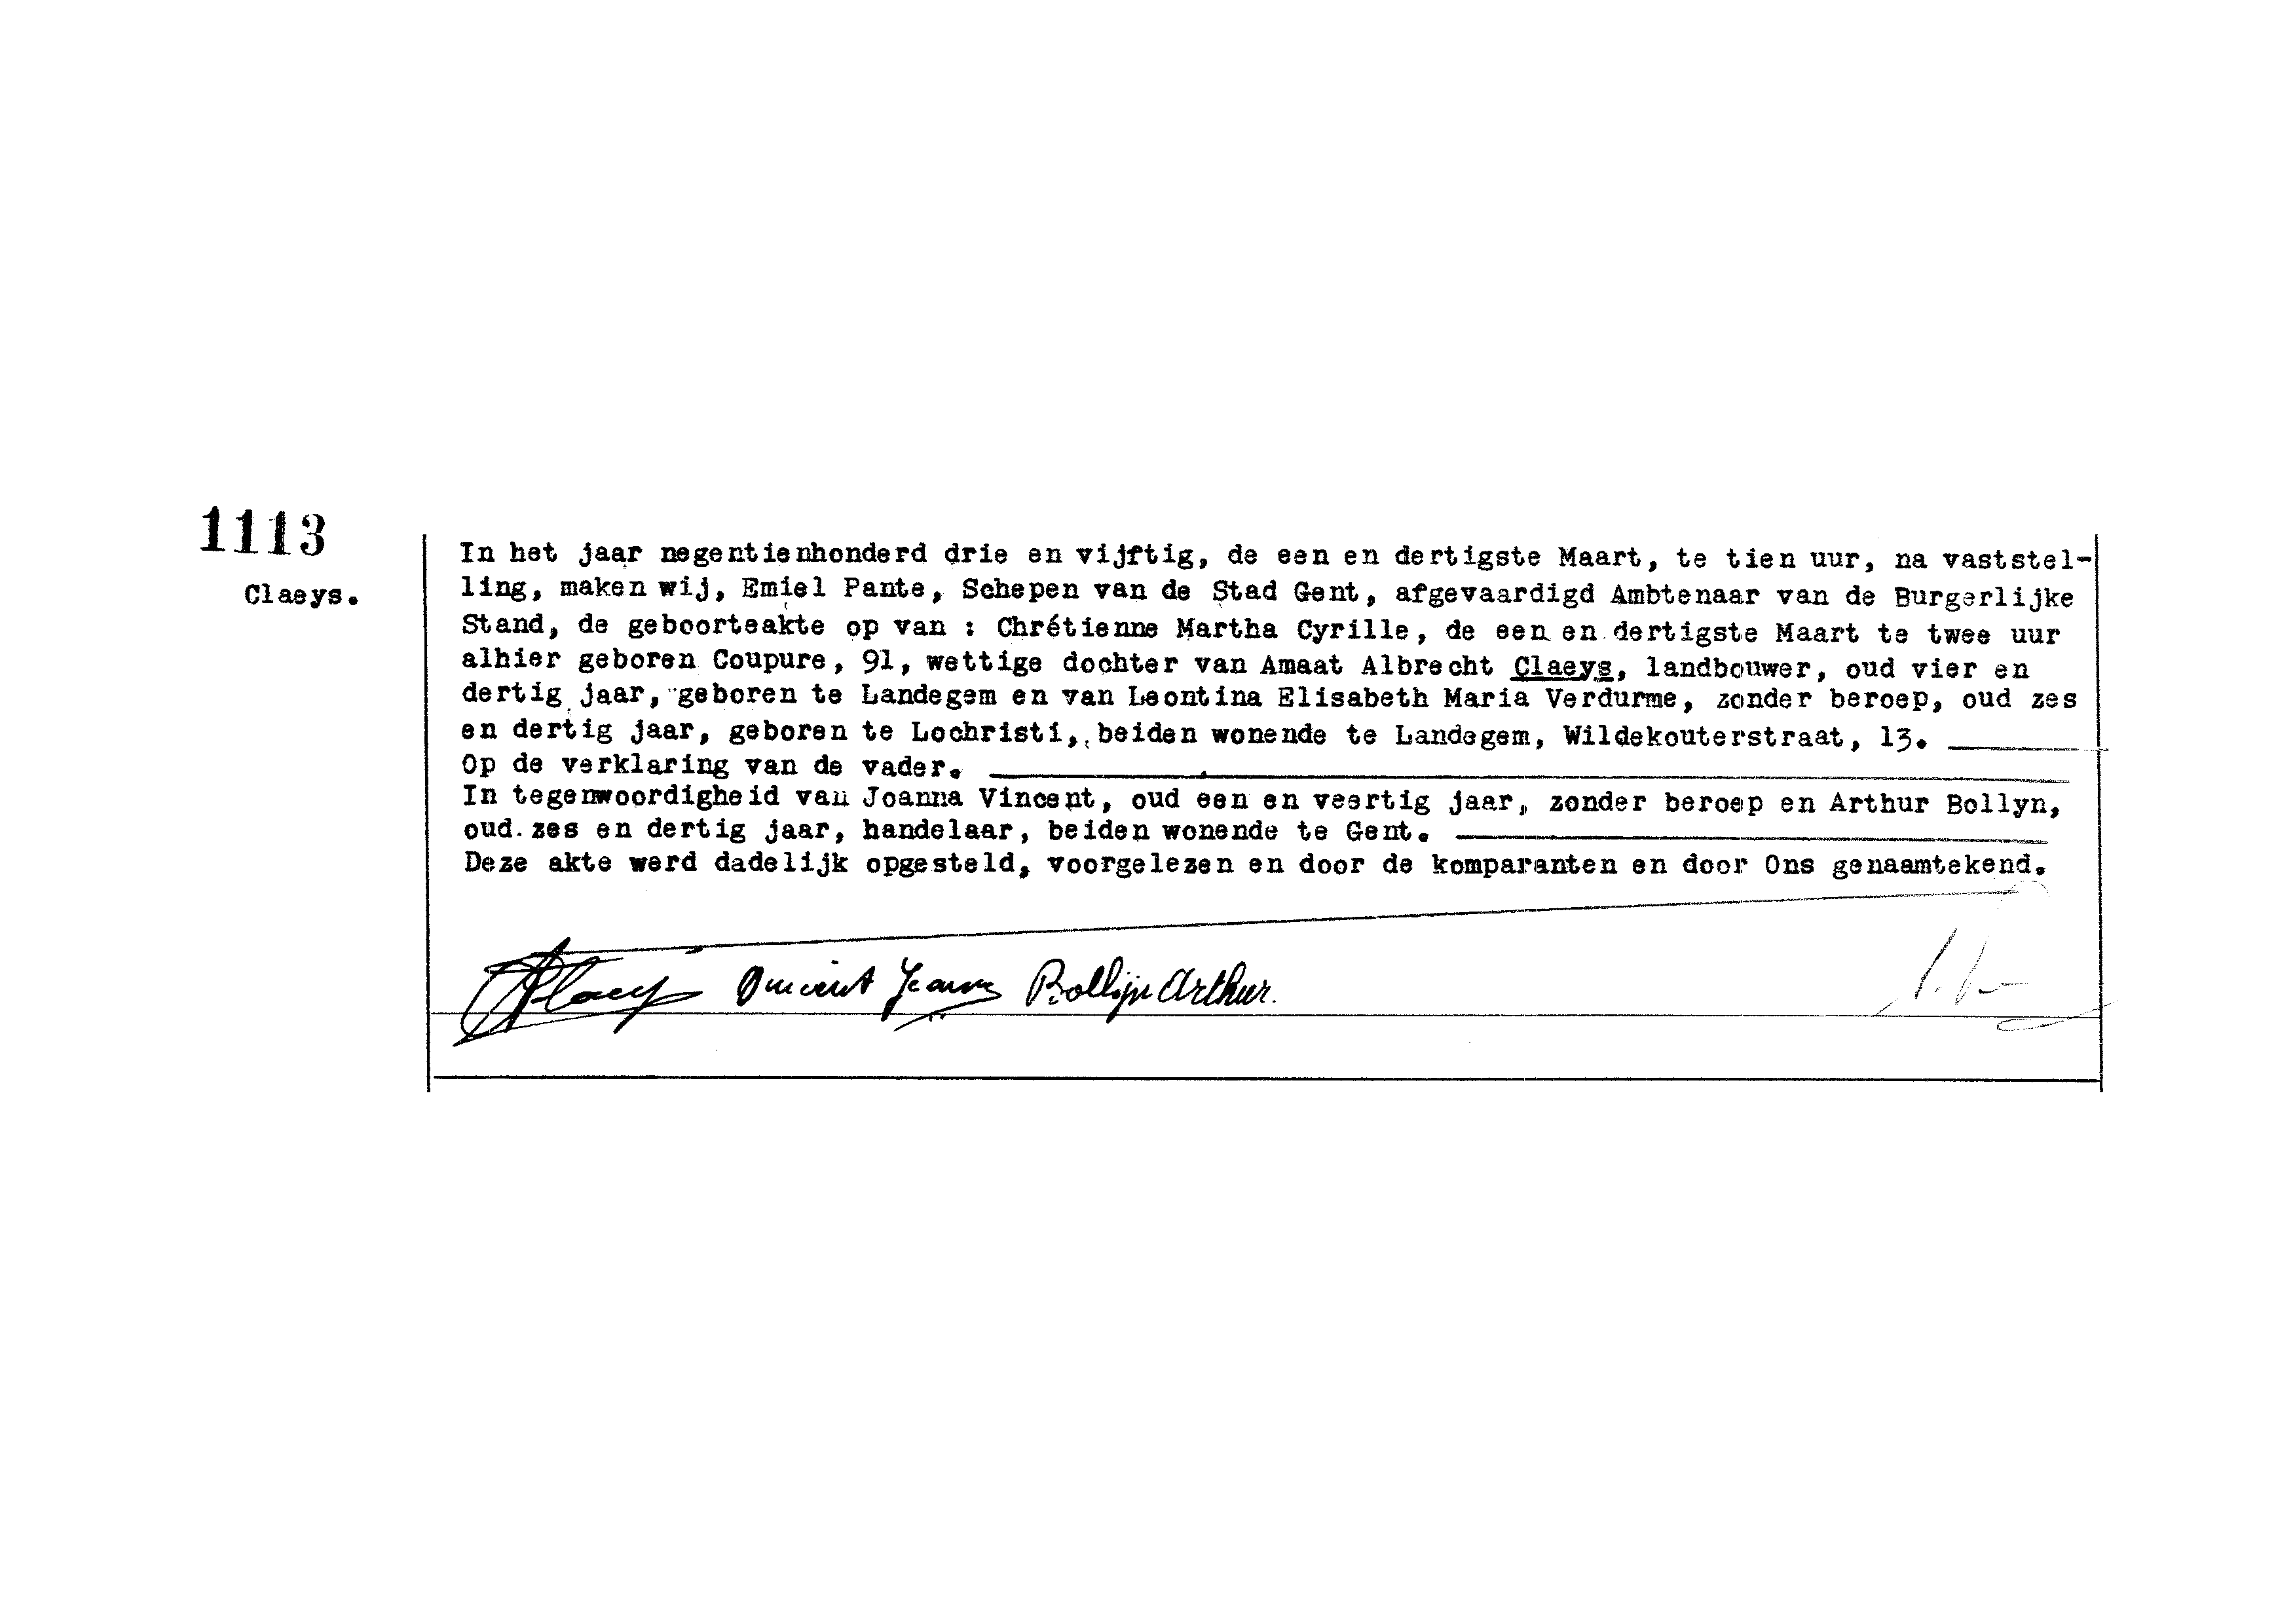 1113
Claeys.
In het jaar negentienhonderd drie en vijftig, de een en dertigste Maart, te tien uur, na vaststel-
ling, maken wij, Emiel Pante, Schepen van de Stad Gent, afgevaardigd Ambtenaar van de Burgerlijke
Stand, de geboorteakte op van : Chrétienne Martha Cyrille, de een en dertigste Maart te twee uur
alhier geboren Coupure, 91, wettige dochter van Amaat Albrecht Claeys, landbouwer, oud vier en
dertig jaar, geboren te Landegem en van Leontina Elisabeth Maria Verdurme, zonder beroep, oud zes
en dertig jaar, geboren te Lochristi, beiden wonende te Landegem, Wildekouterstraat, 13.
Op de verklaring van de vader.
In tegenwoordigheid van Joanna Vincent, oud een en veertig jaar, zonder beroep en Arthur Bollyn,
oud zes en dertig jaar, handelaar, beiden wonende te Gent.
Deze akte werd dadelijk opgesteld, voorgelezen en door de komparanten en door Ons genaamtekend.
Claeys Vincent Jeanne Bollijn Arthur.